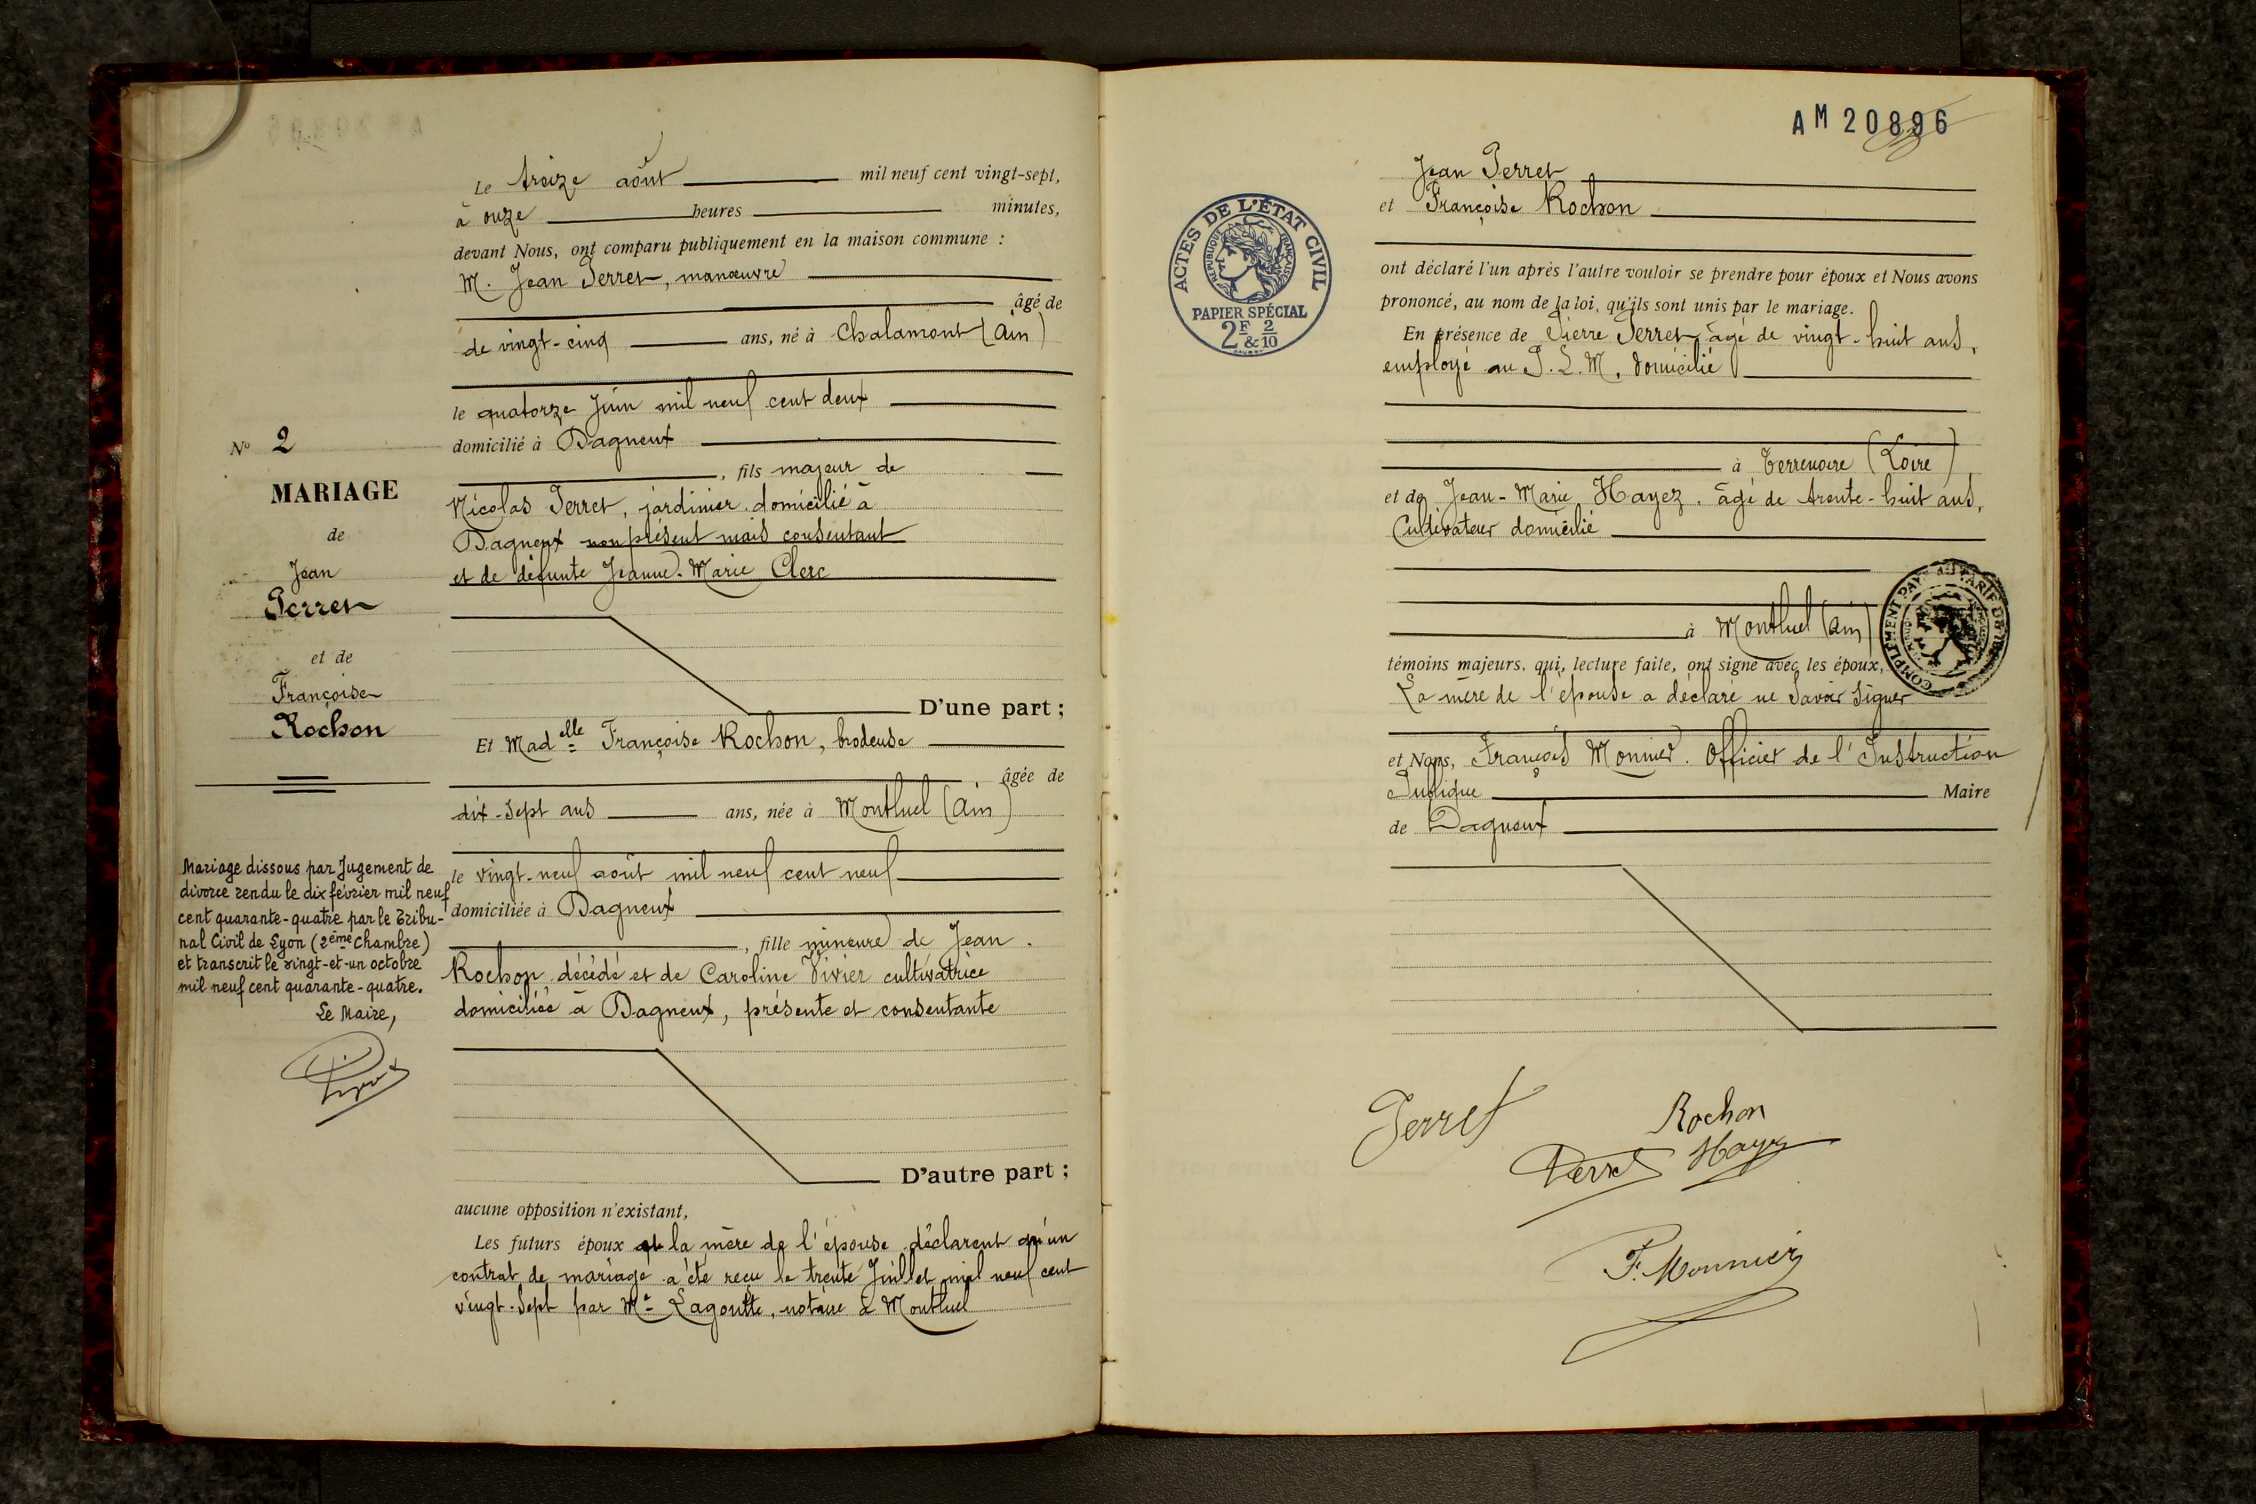 Le treize août mil neuf cent vingt-sept,
à onze heures minutes,
devant Nous, ont comparu publiquement en la maison commune :
M. Jean Perret, manœuvre
âgé de
de vingt-cinq ans, né à Chalamont (Ain)
le quatorze Juin mil neuf cent deux
domicilié à Dagneux
, fils majeur de
Nicolas Perret, jardinier domicilié à
Dagneux non présent mais consentant
et de défunte Jeanne-Marie Clerc
D'une part ;
Et Mad elle Françoise Rochon, brodeuse
, âgée de
dix-sept ans ans, née à Montluel (Ain)
le vingt-neuf août mil neuf cent neuf
domiciliée à Dagneux
, fille mineure de Jean
Rochon, décédé et de Caroline Vivier cultivatrice
domiciliée à Dagneux, présente et consentante
D'autre part ;
aucune opposition n'existant,
Les futurs époux et la mère de l'épouse déclarent qu'un
contrat de mariage a été reçu le trente Juillet mil neuf cent
vingt-sept par Me Lagoutte, notaire à Montluel
No 2
MARIAGE
de
Jean
Perret
et de
Françoise
Rochon
Mariage dissous par Jugement de
divorce rendu le dix février mil neuf
cent quarante-quatre par le Tribu-
nal Civil de Lyon (2ème Chambre)
et transcrit le vingt-et-un octobre
mil neuf cent quarante-quatre.
Le Maire,
AM 20896
ACTES DE L'ÉTAT CIVIL
RÉPUBLIQUE FRANÇAISE
PAPIER SPÉCIAL
2F & 2/10
Jean Perret
et Françoise Rochon
ont déclaré l'un après l'autre vouloir se prendre pour époux et Nous avons
prononcé, au nom de la loi, qu'ils sont unis par le mariage.
En présence de Pierre Perret, âgé de vingt-huit ans,
employé au P.L.M. domicilié
à Terrenoire (Loire)
et de Jean-Marie Hayez, âgé de trente-huit ans,
Cultivateur domicilié
à Montluel (Ain)
COMPLÉMENT PAYÉ AU TARIF DE
témoins majeurs, qui, lecture faite, ont signé avec les époux,
La mère de l'épouse a déclaré ne savoir signer
et Nous, François Monnier. Officier de l'Instruction
Publique Maire
de Dagneux
Perret
Rochon
Perret Hayez
F. Monnier